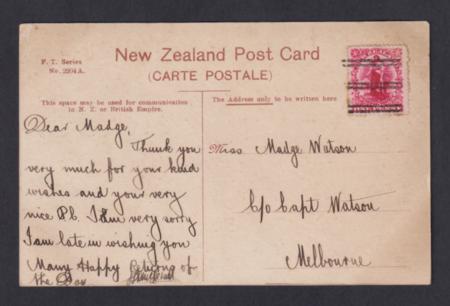 F. T. Series
No. 2204A.
New Zealand Post Card
(CARTE POSTALE)
This space may be used for communication
in N. Z. or British Empire.
The Address only to be written here
Dear Madge,
Thank you
very much for your kind
wishes and your very
nice P.C. I am very sorry
I am late in wishing you
Many Happy Returns of
the Day
Miss Madge Watson
C/o Capt Watson
Melbourne